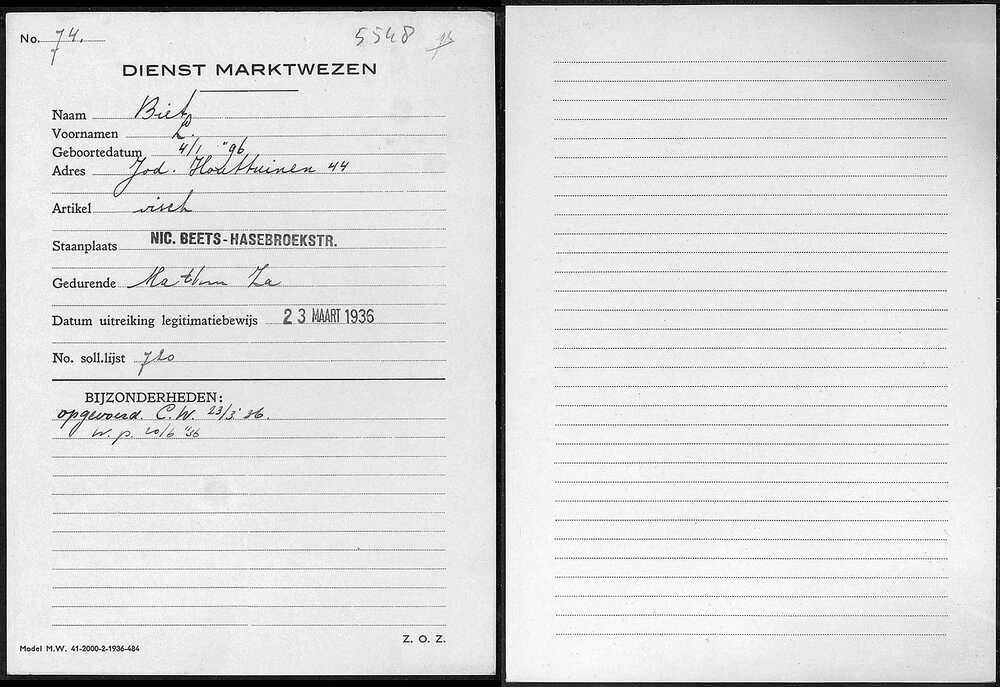 No. 74. 5548
DIENST MARKTWEZEN
Naam Biet
Voornamen L.
Geboortedatum 4/1 "96
Adres Jod. Houttuinen 44
Artikel visch
Staanplaats NIC. BEETS-HASEBROEKSTR.
Gedurende Ma t/m Za
Datum uitreiking legitimatiebewijs 23 MAART 1936
No. soll.lijst 720
BIJZONDERHEDEN:
opgevoerd. C.W. 23/3. 36.
w. p. 20/6 "36
Z. O. Z.
Model M.W. 41-2000-2-1936-484